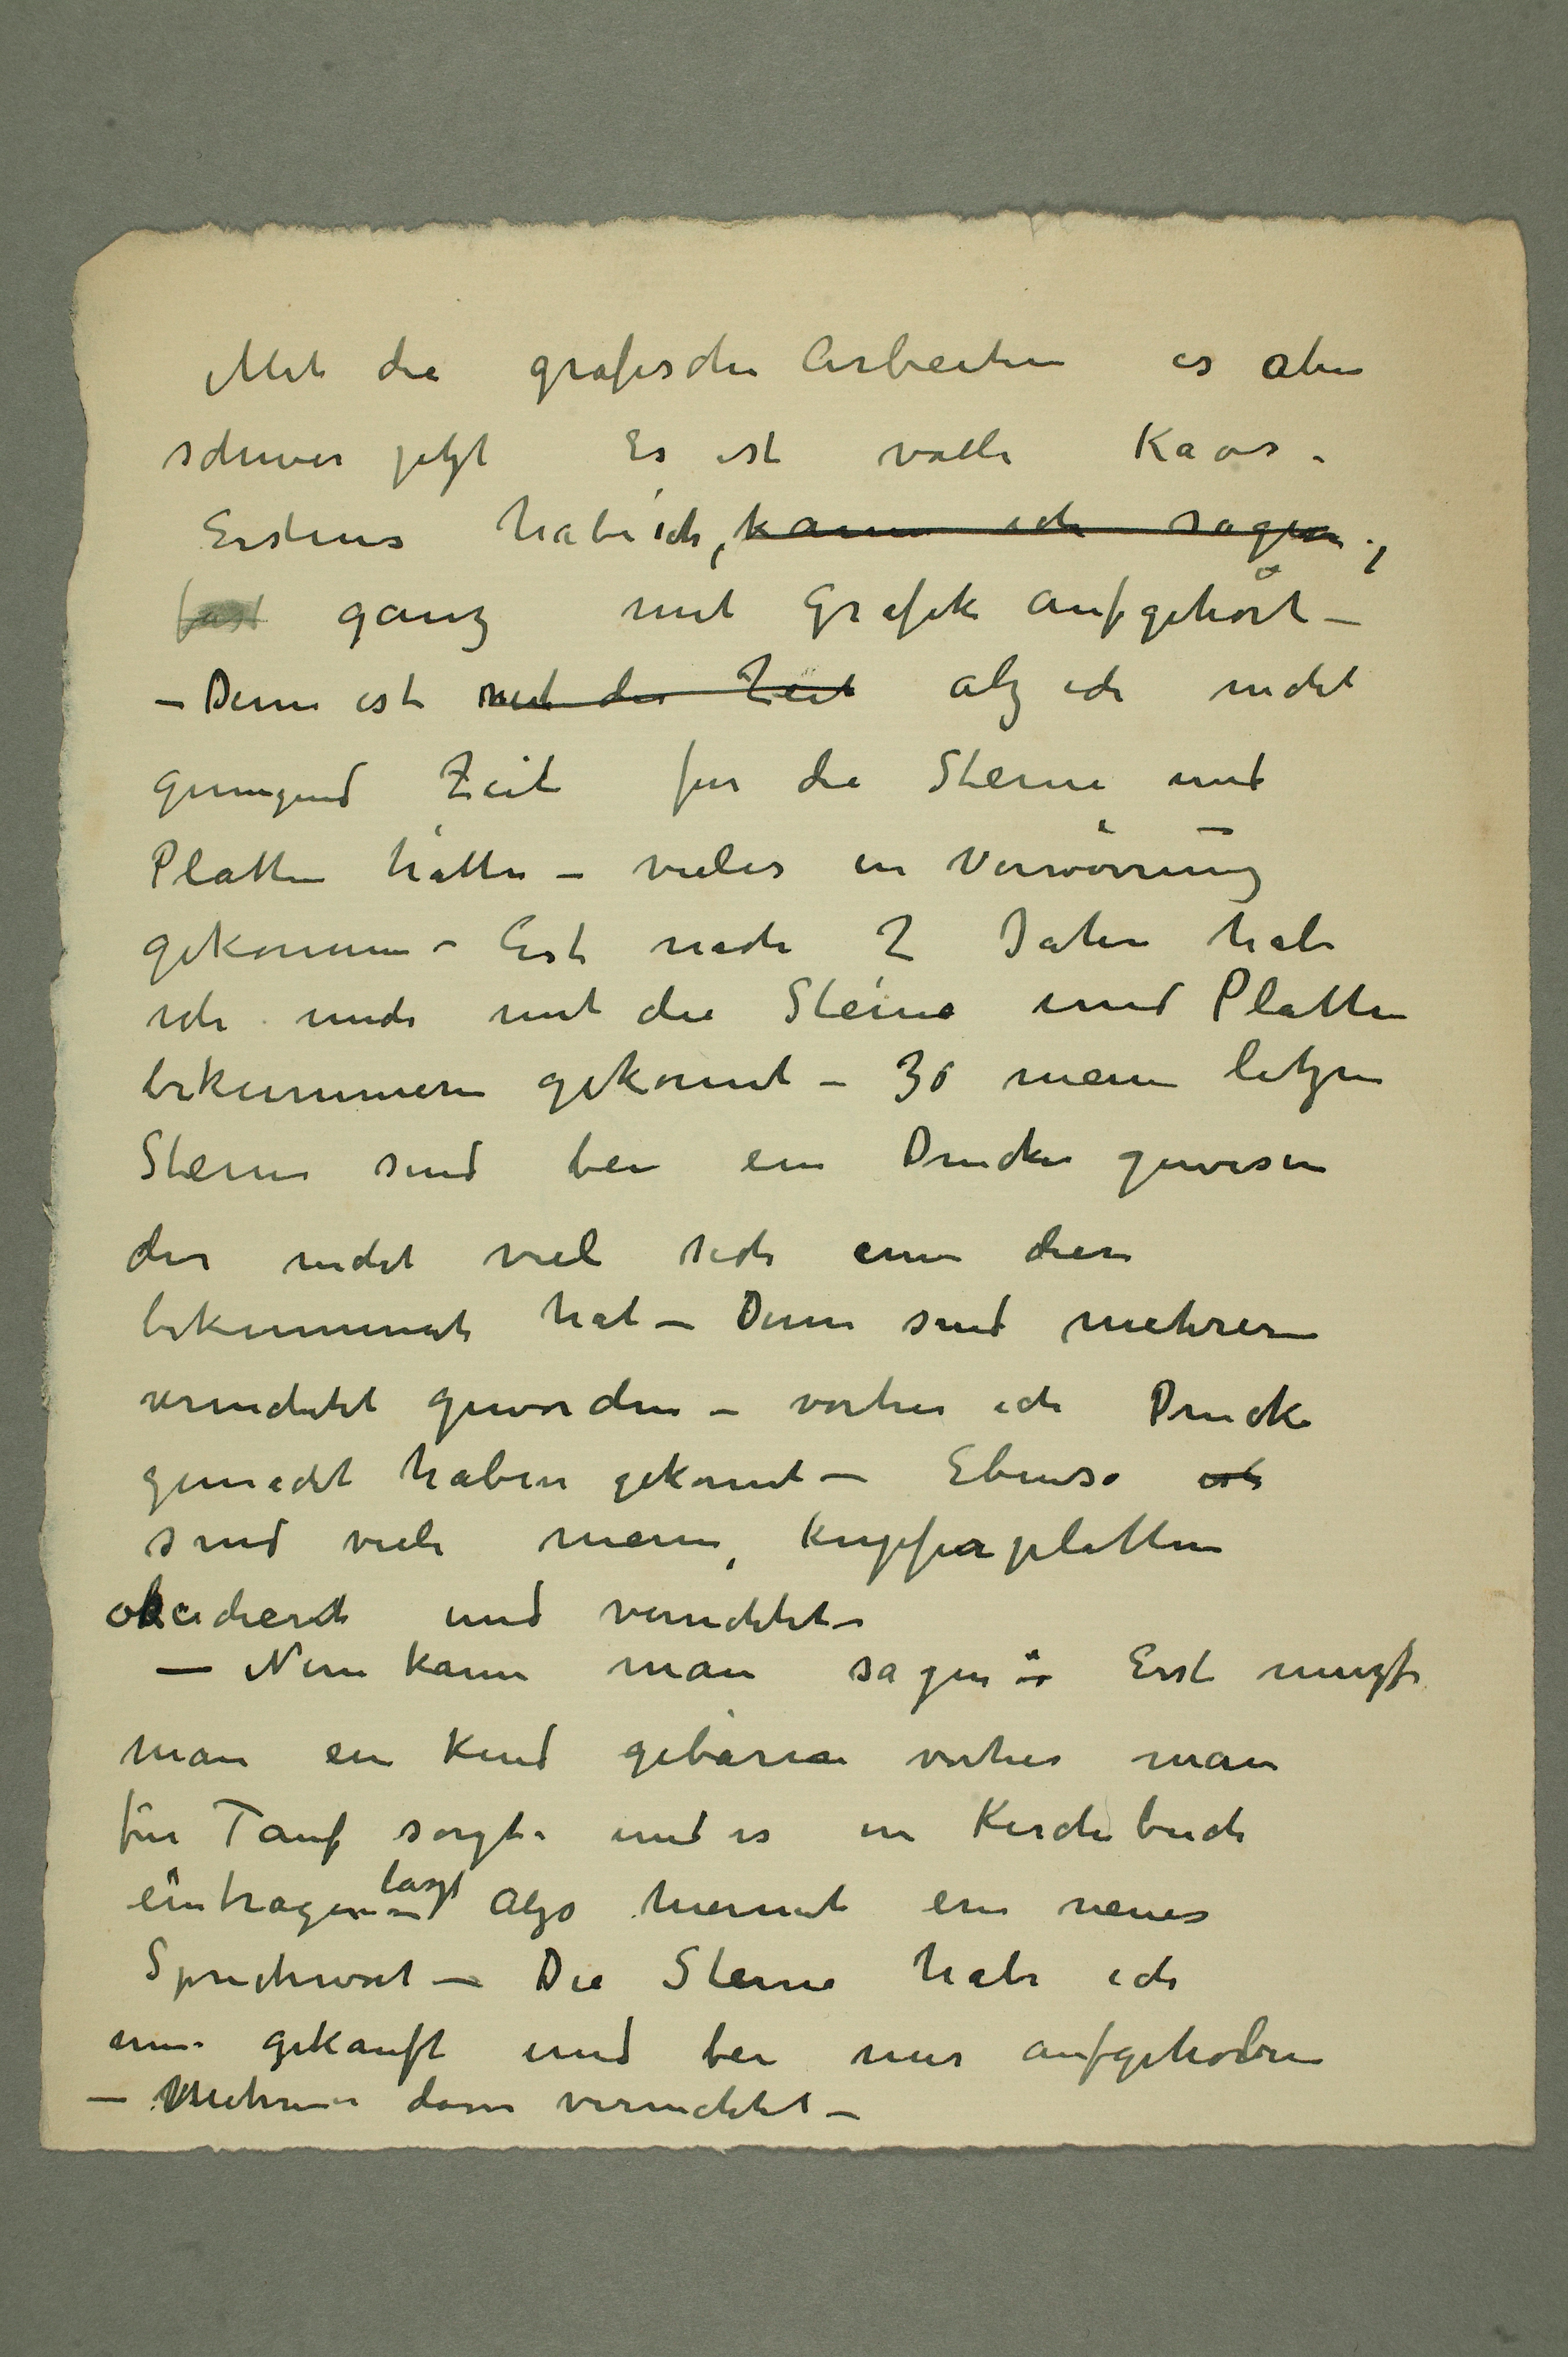 Mit die grafische Arbeiten es aber
schwer jetzt Es ist volle Kaos.
Erstens habe ich, kann ich sagen,
fast ganz mit Grafik aufgehört –
– Denn ist mit der Zeit alz ich nicht
genugend Zeit fur die Steine und
Platten hätte – vieles in Verwörrung
gekommen – Erst nach 2 Jahre habe
ich mich mit die Steine und Platten
bekummern gekonnt – 30 meine letzen
Steine sind bei ein Drucker gewesen
der nicht viel sich um diese
bekummert hat – Denn sind mehrere
vernichtet geworden – vorher ich Drucke
gemacht haben gekonnt – Ebenso ist
sind viele meine, Kupferplatten
okcidiert und vernichtet –
– Nun kann man sagen – Erst muzs
man ein Kind gebären vorher man
für Tauf sorgt – und es in Kirchebuch
eintragen lazt – Alzo hiermit ein neues
Sprichwort – Die Steine habe ich
nun gekauft und bei mir aufgehoben
– Mehrere davon vernichtet –